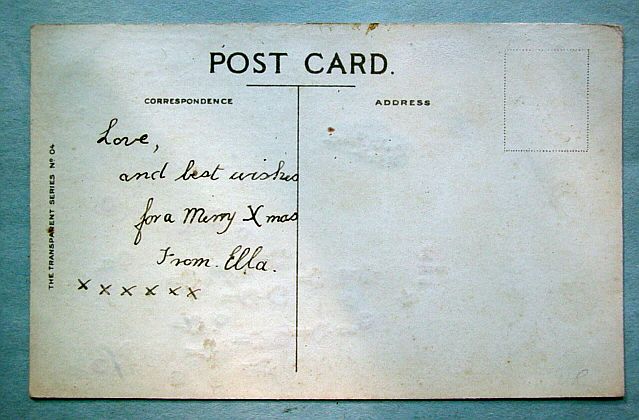 POST CARD.
CORRESPONDENCE
ADDRESS
THE TRANSPARENT SERIES Nº 04
Love,
and best wishes
for a Merry Xmas
From. Ella.
x x x x x x